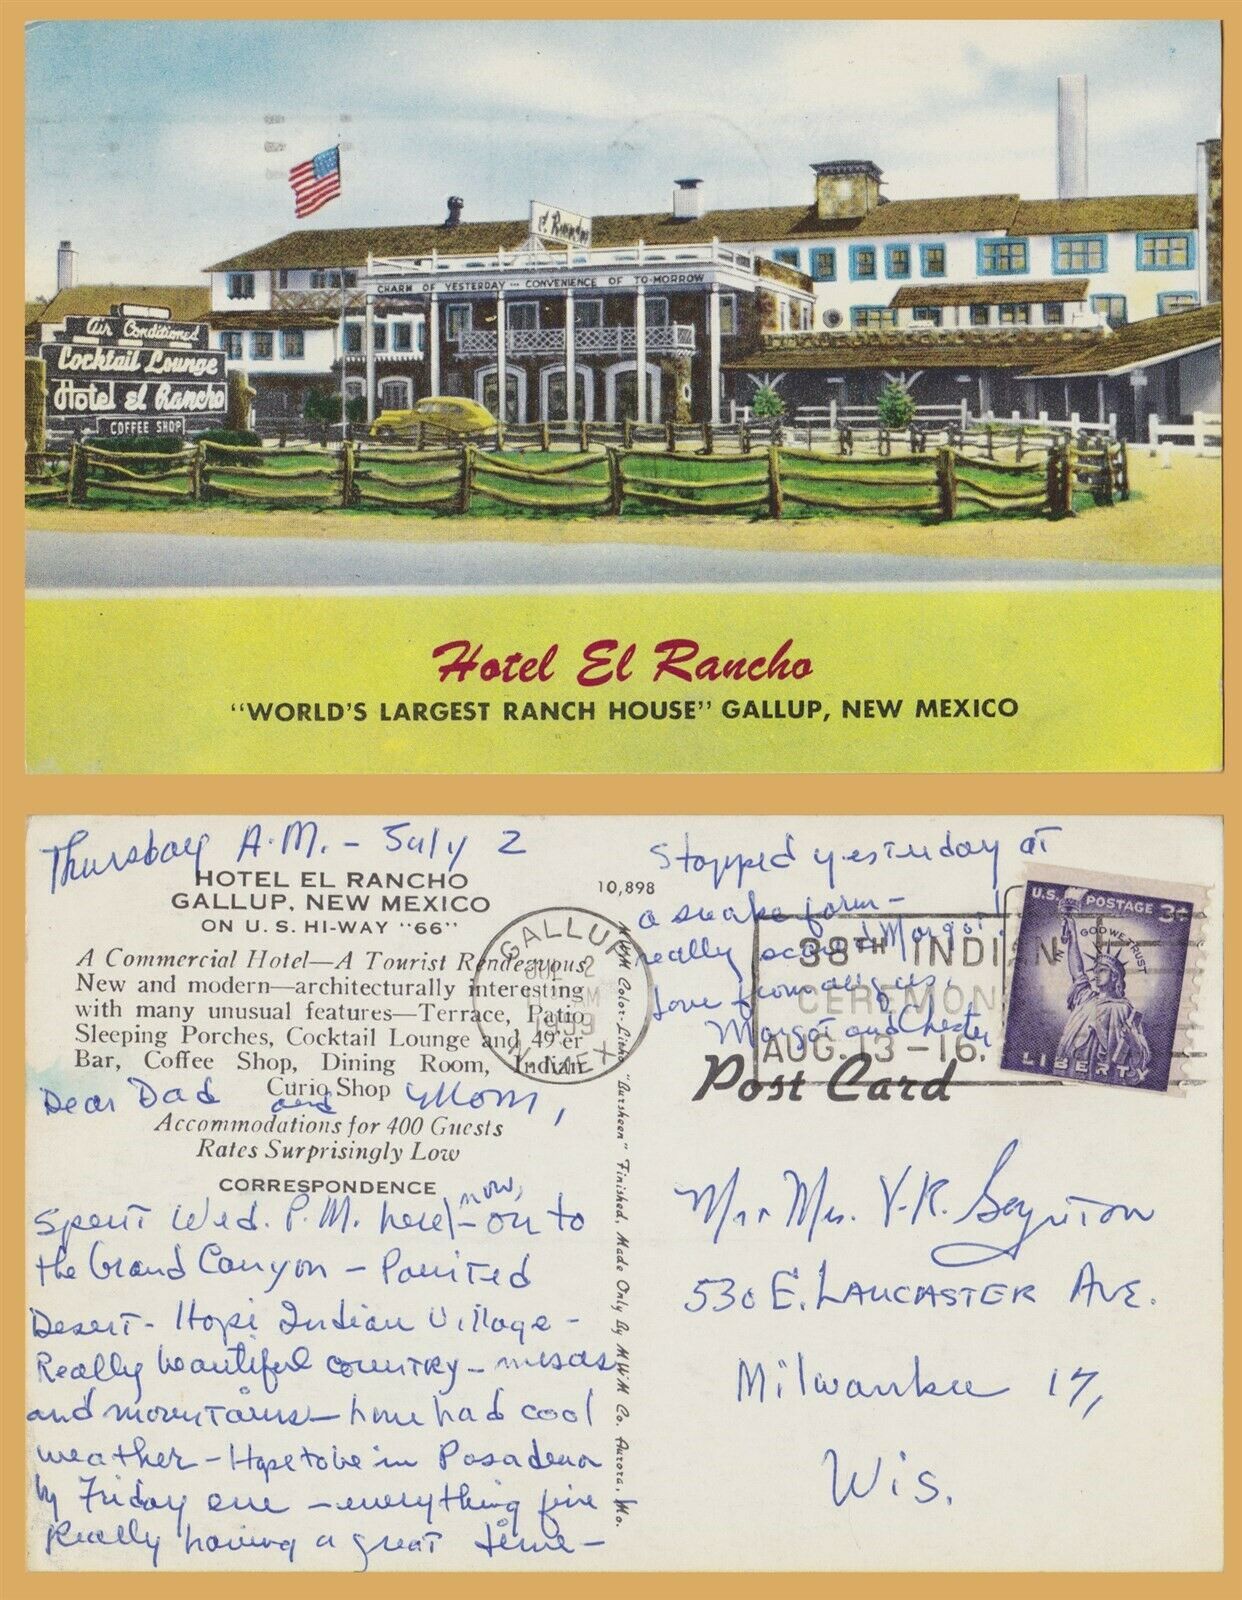 El Rancho
CHARM OF YESTERDAY — CONVENIENCE OF TO-MORROW
Air Conditioned
Cocktail Lounge
Hotel El Rancho
COFFEE SHOP
Hotel El Rancho
"WORLD'S LARGEST RANCH HOUSE" GALLUP, NEW MEXICO
Thursday A.M. - July 2
HOTEL EL RANCHO
GALLUP, NEW MEXICO
ON U.S. HI-WAY "66"
A Commercial Hotel—A Tourist Rendezvous
New and modern—architecturally interesting
with many unusual features—Terrace, Patio
Sleeping Porches, Cocktail Lounge and 49'er
Bar, Coffee Shop, Dining Room, Indian
Curio Shop
Dear Dad and Mom,
Accommodations for 400 Guests
Rates Surprisingly Low
CORRESPONDENCE
Spent Wed. P.M. here - now, on to
the Grand Canyon - Painted
Desert - Hopi Indian Village -
Really beautiful country - mesas
and mountains - have had cool
weather - Hope to be in Pasadena
by Friday eve - everything fine
Really having a great time -
10,898
MWM Color-Litho "Bursheen" Finished, Made Only By MWM Co. Aurora, Mo.
GALLUP
JUL 2
AM
1959
N. MEX
Stopped yesterday at
a snake farm -
really scared Margot!
Love from all of us,
Margot and Chester
38TH INDIAN
CEREMON
AUG. 13-16.
U.S. POSTAGE 3¢
IN GOD WE TRUST
LIBERTY
Post Card
Mr + Mrs. V.R.
530 E. LANCASTER AVE.
Milwaukee 17,
Wis.